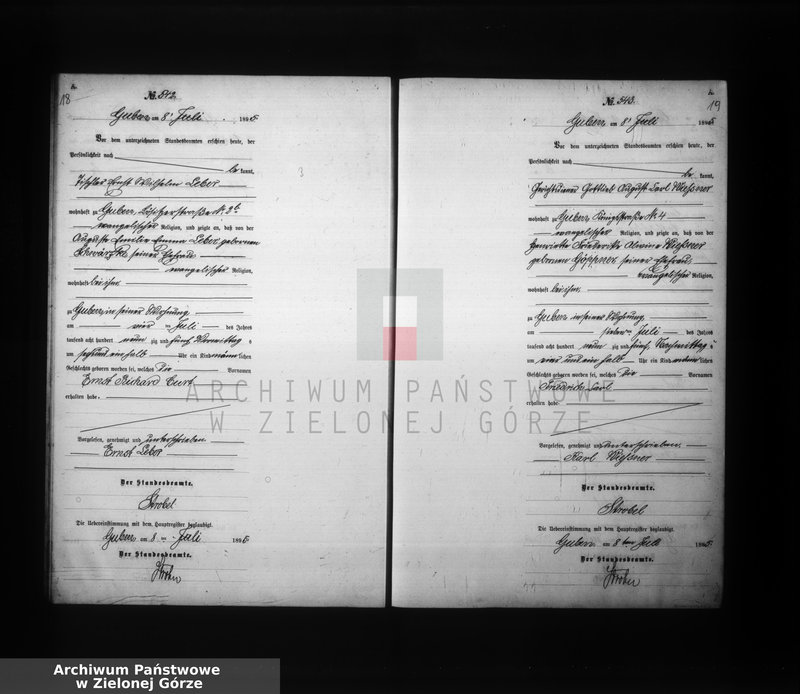 A.
18
№ 542.
Guben am 8t Juli 1895
Vor dem unterzeichneten Standesbeamten erschien heute, der
Persönlichkeit nach
be kannt,
Tischler Ernst Wilhelm Leber
wohnhaft zu Guben,
evangelischer Religion, und zeigte an, daß von der
Auguste Emilie Emma Leber, geborenen
seiner Ehefrau
evangelischer Religion,
wohnhaft bei ihm,
zu Guben, in seiner Wohnung
am vier ten Juli des Jahres
tausend acht hundert neun zig und fünf, Vormittag s
um sechs und einhalb Uhr ein Kind männlichen
Geschlechts geboren worden sei, welches die Vornamen
Ernst Richard Curt
erhalten habe.
Vorgelesen, genehmigt und unterschrieben
Ernst Leber
Der Standesbeamte.
Strobel
Die Uebereinstimmung mit dem Hauptregister beglaubigt.
Guben am 8 ten Juli 1895
Der Standesbeamte.
A.
19
№ 543.
Guben am 8t Juli 1895
Vor dem unterzeichneten Standesbeamten erschien heute, der
Persönlichkeit nach
be kannt,
Gottlieb August Carl Wießner
wohnhaft zu Guben, Königstraße № 4
evangelischer Religion, und zeigte an, daß von der
Henriette Friederike Alwine Wießner
geborenen Göppner, seiner Ehefrau,
evangelischer Religion,
wohnhaft bei ihm,
zu Guben in seiner Wohnung
am sieben ten Juli des Jahres
tausend acht hundert neun zig und fünf, Nachmittag s
um vier und ein halb Uhr ein Kind männlichen
Geschlechts geboren worden sei, welches die Vornamen
Friedrich Carl
erhalten habe.
Vorgelesen, genehmigt und unterschrieben
Karl Wießner
Der Standesbeamte.
Strobel
Die Uebereinstimmung mit dem Hauptregister beglaubigt.
Guben am 8 ten Juli 1895
Der Standesbeamte.
ARCHIWUM PAŃSTWOWE
W ZIELONEJ GÓRZE
Archiwum Państwowe
w Zielonej Górze